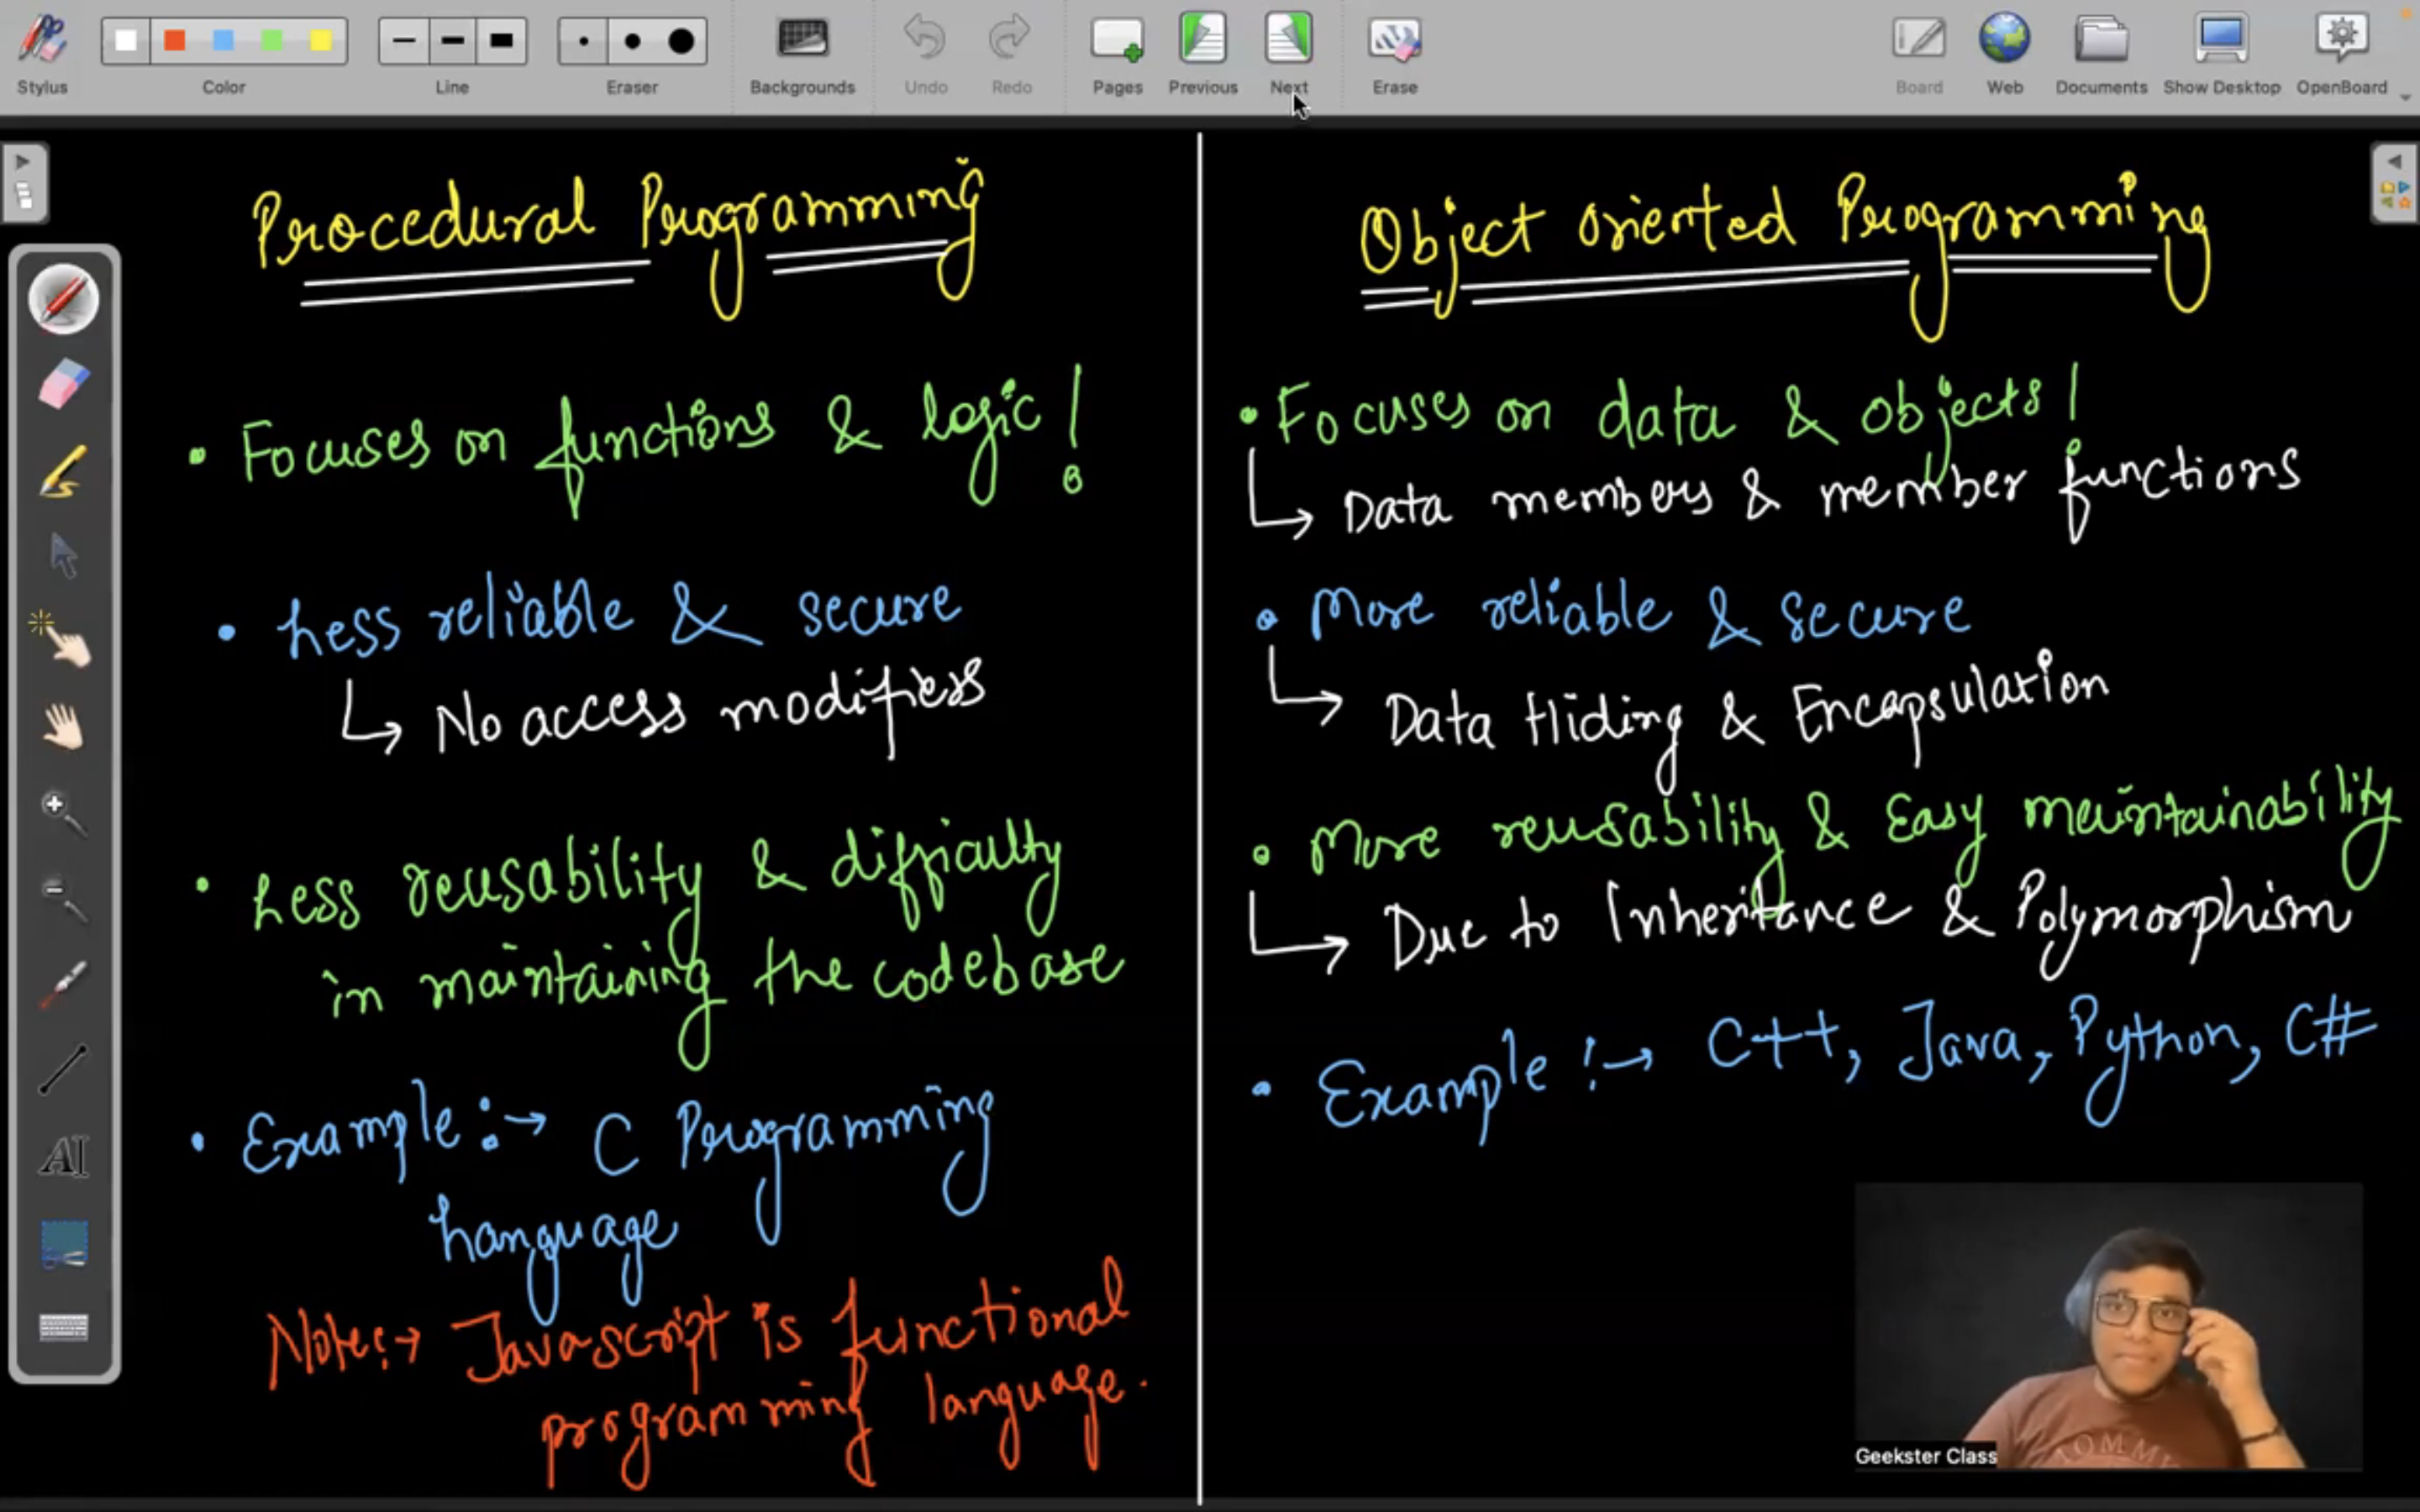 Stylus
Color
Line
Eraser
Backgrounds
Undo
Redo
Pages
Previous
Next
Erase
Board
Web
Documents
Show Desktop
OpenBoard
Procedural Programming
• Focuses on functions & logic!
• Less reliable & secure
↳ No access modifiers
• Less reusability & difficulty
in maintaining the codebase
• Example :→ C Programming
Language
Note :→ Javascript is functional
programming language.
Object oriented Programming
• Focuses on data & objects!
↳ Data members & member functions
• More reliable & secure
↳ Data Hiding & Encapsulation
• More reusability & Easy maintainability
↳ Due to Inheritance & Polymorphism
• Example :→ C++, Java, Python, C#
AI
Geekster Class